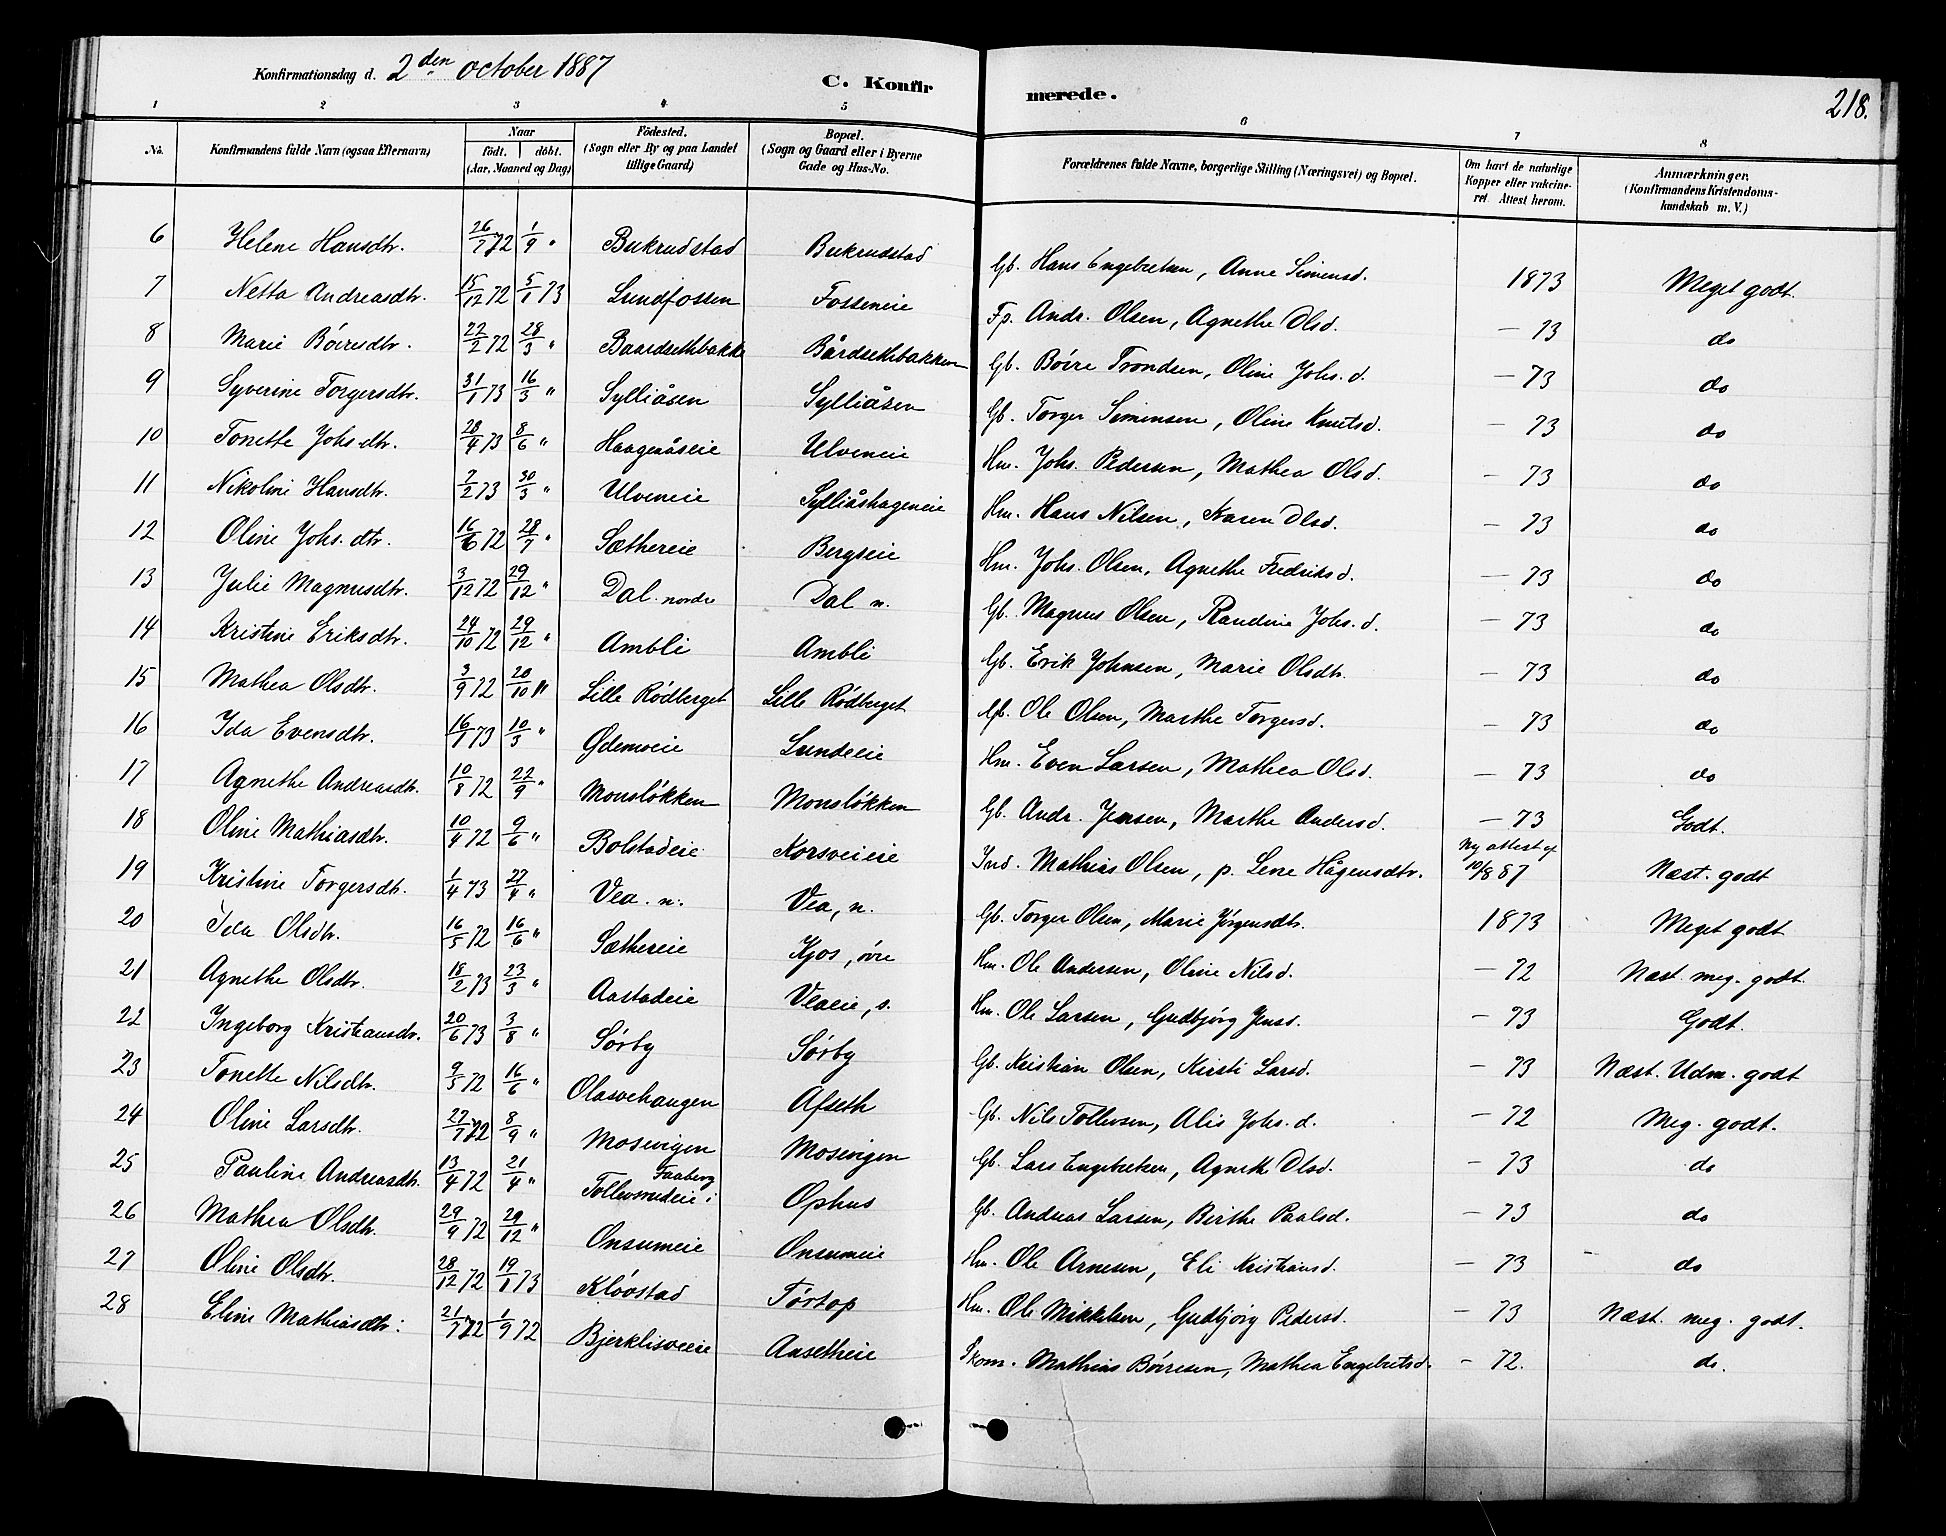 Konfirmationsdag d. 2den october 1887
C. Konfirmerede.
218.
1 2 3 4 5 6 7 8
No. Konfirmandens fulde Navn (ogsaa Efternavn) Naar födt. döbt. (Aar, Maaned og Dag) Födested. (Sogn eller By og paa Landet tillige Gaard) Bopæl. (Sogn og Gaard eller i Byerne Gade og Hus-No. Forældrenes fulde Navne, borgerlige Stilling (Næringsvei) og Bopæl. Om havt de naturlige Kopper eller vakcineret. Attest herom. Anmærkninger. (Konfirmandens Kristendomskundskab m. V.)
6 Helene Hansdtr. 26/7 72 1/9 " Bukrudstad Bukrudstad Gb. Hans Engebretsen, Anne Simensd. 1873 Meget godt.
7 Netta Andreasdtr. 15/12 72 5/1 73 Lundfossen Fosseneie Fp. Andr. Olsen, Agnethe Olsd. — 73 do
8 Marie Böiresdtr. 22/2 72 28/3 " Baardsethbakke Bårdsethbakken Gb. Böire Trondsen, Oline Johs. d. — 73 do
9 Syverine Torgersdtr. 31/1 73 16/3 " Sylliåsen Sylliåsen Gb. Torger Simensen, Oline Knutsd. — 73 do
10 Tonette Johs. dtr. 28/4 73 8/6 " Haagenåseie Ulveneie Hm. Johs. Pedersen, Mathea Olsd. — 73 do
11 Nikoline Hansdtr. 2/2 73 30/3 " Ulveneie Sylliåshageneie Hm. Hans Nilsen, Karen Olsd. — 73 do
12 Oline Johs. dtr. 16/6 72 28/7 " Sæthereie Bergseie Hm. Johs. Olsen, Agnethe Fredriksd. — 73 do
13 Julie Magnusdtr. 3/12 72 29/12 " Dal nordre Dal n. Gb. Magnus Olsen, Randine Johs. d. — 73 do
14 Kristine Eriksdtr. 24/10 72 29/12 " Ambli Ambli Gb. Erik Johnsen, Marie Olsdtr. — 73 do
15 Mathea Olsdtr. 3/9 72 20/10 " Lille Rödberget Lille Rödberget Gb. Ole Olsen, Marthe Torgersd. — 73 do
16 Ida Evensdtr. 16/1 73 10/3 " Ødemoeie Lundeie Hm. Even Larsen, Mathea Olsd. — 73 do
17 Agnethe Andreasdtr. 10/8 72 22/9 " Monslökken Monslökken Gb. Andr. Jensen, Marthe Andersd. — 73 Godt.
18 Oline Mathiasdtr. 10/4 72 9/6 " Bolstadeie Korsveieie Ind. Mathias Olsen, p. Lene Hågensdtr. Ny attest af 10/8 87 Næst. godt
19 Kristine Torgersdtr. 1/4 73 27/4 " Vea. n. Vea, n. Gb. Torger Olsen, Marie Jörgensdtr. 1873 Meget godt
20 Ida Olsdtr. 16/5 72 16/6 " Sæthereie Kjos, övre Hm. Ole Andersen, Oline Nilsd. — 72 Næst. meg. godt.
21 Agnethe Olsdtr. 18/2 73 23/3 " Aastadeie Veaeie, s. Hm. Ole Larsen, Gudbjörg Jensd. — 73 Godt.
22 Ingeborg Kristiansdtr. 20/6 73 3/8 " Sörby Sörby Gb. Kristian Olsen, Kirsti Larsd. — 73 Næst. Udm. godt
23 Tonette Nilsdtr. 9/5 72 16/6 " Olasvehaugen Afseth Gb. Nils Tollevsen, Alis Johs. d. — 72 Meg. godt.
24 Oline Larsdtr. 27/7 72 8/9 " Mosevigen Mosevigen Gb. Lars Engebretsen, Agneth Olsd. — 73 do
25 Pauline Andreasdtr. 13/4 72 21/4 " Tollersrudeie i Faaberg Ophus Gb. Andreas Larsen, Birthe Paalsd. — 73 do
26 Mathea Olsdtr. 29/9 72 29/12 " Onsumeie Onsumeie Hm. Ole Arnesen, Eli Kristiansd. — 73 do
27 Oline Olsdtr. 28/12 72 19/1 73 Klövstad Törtop Hm. Ole Mikkelsen, Gudbjörg Pedersd. — 73 Næst. meg. godt.
28 Eline Mathiasdtr. 21/7 72 1/9 72 Bjerklisveeie Aasetheie Skom. Mathias Böiresen, Mathea Engebretsd. — 72. do.